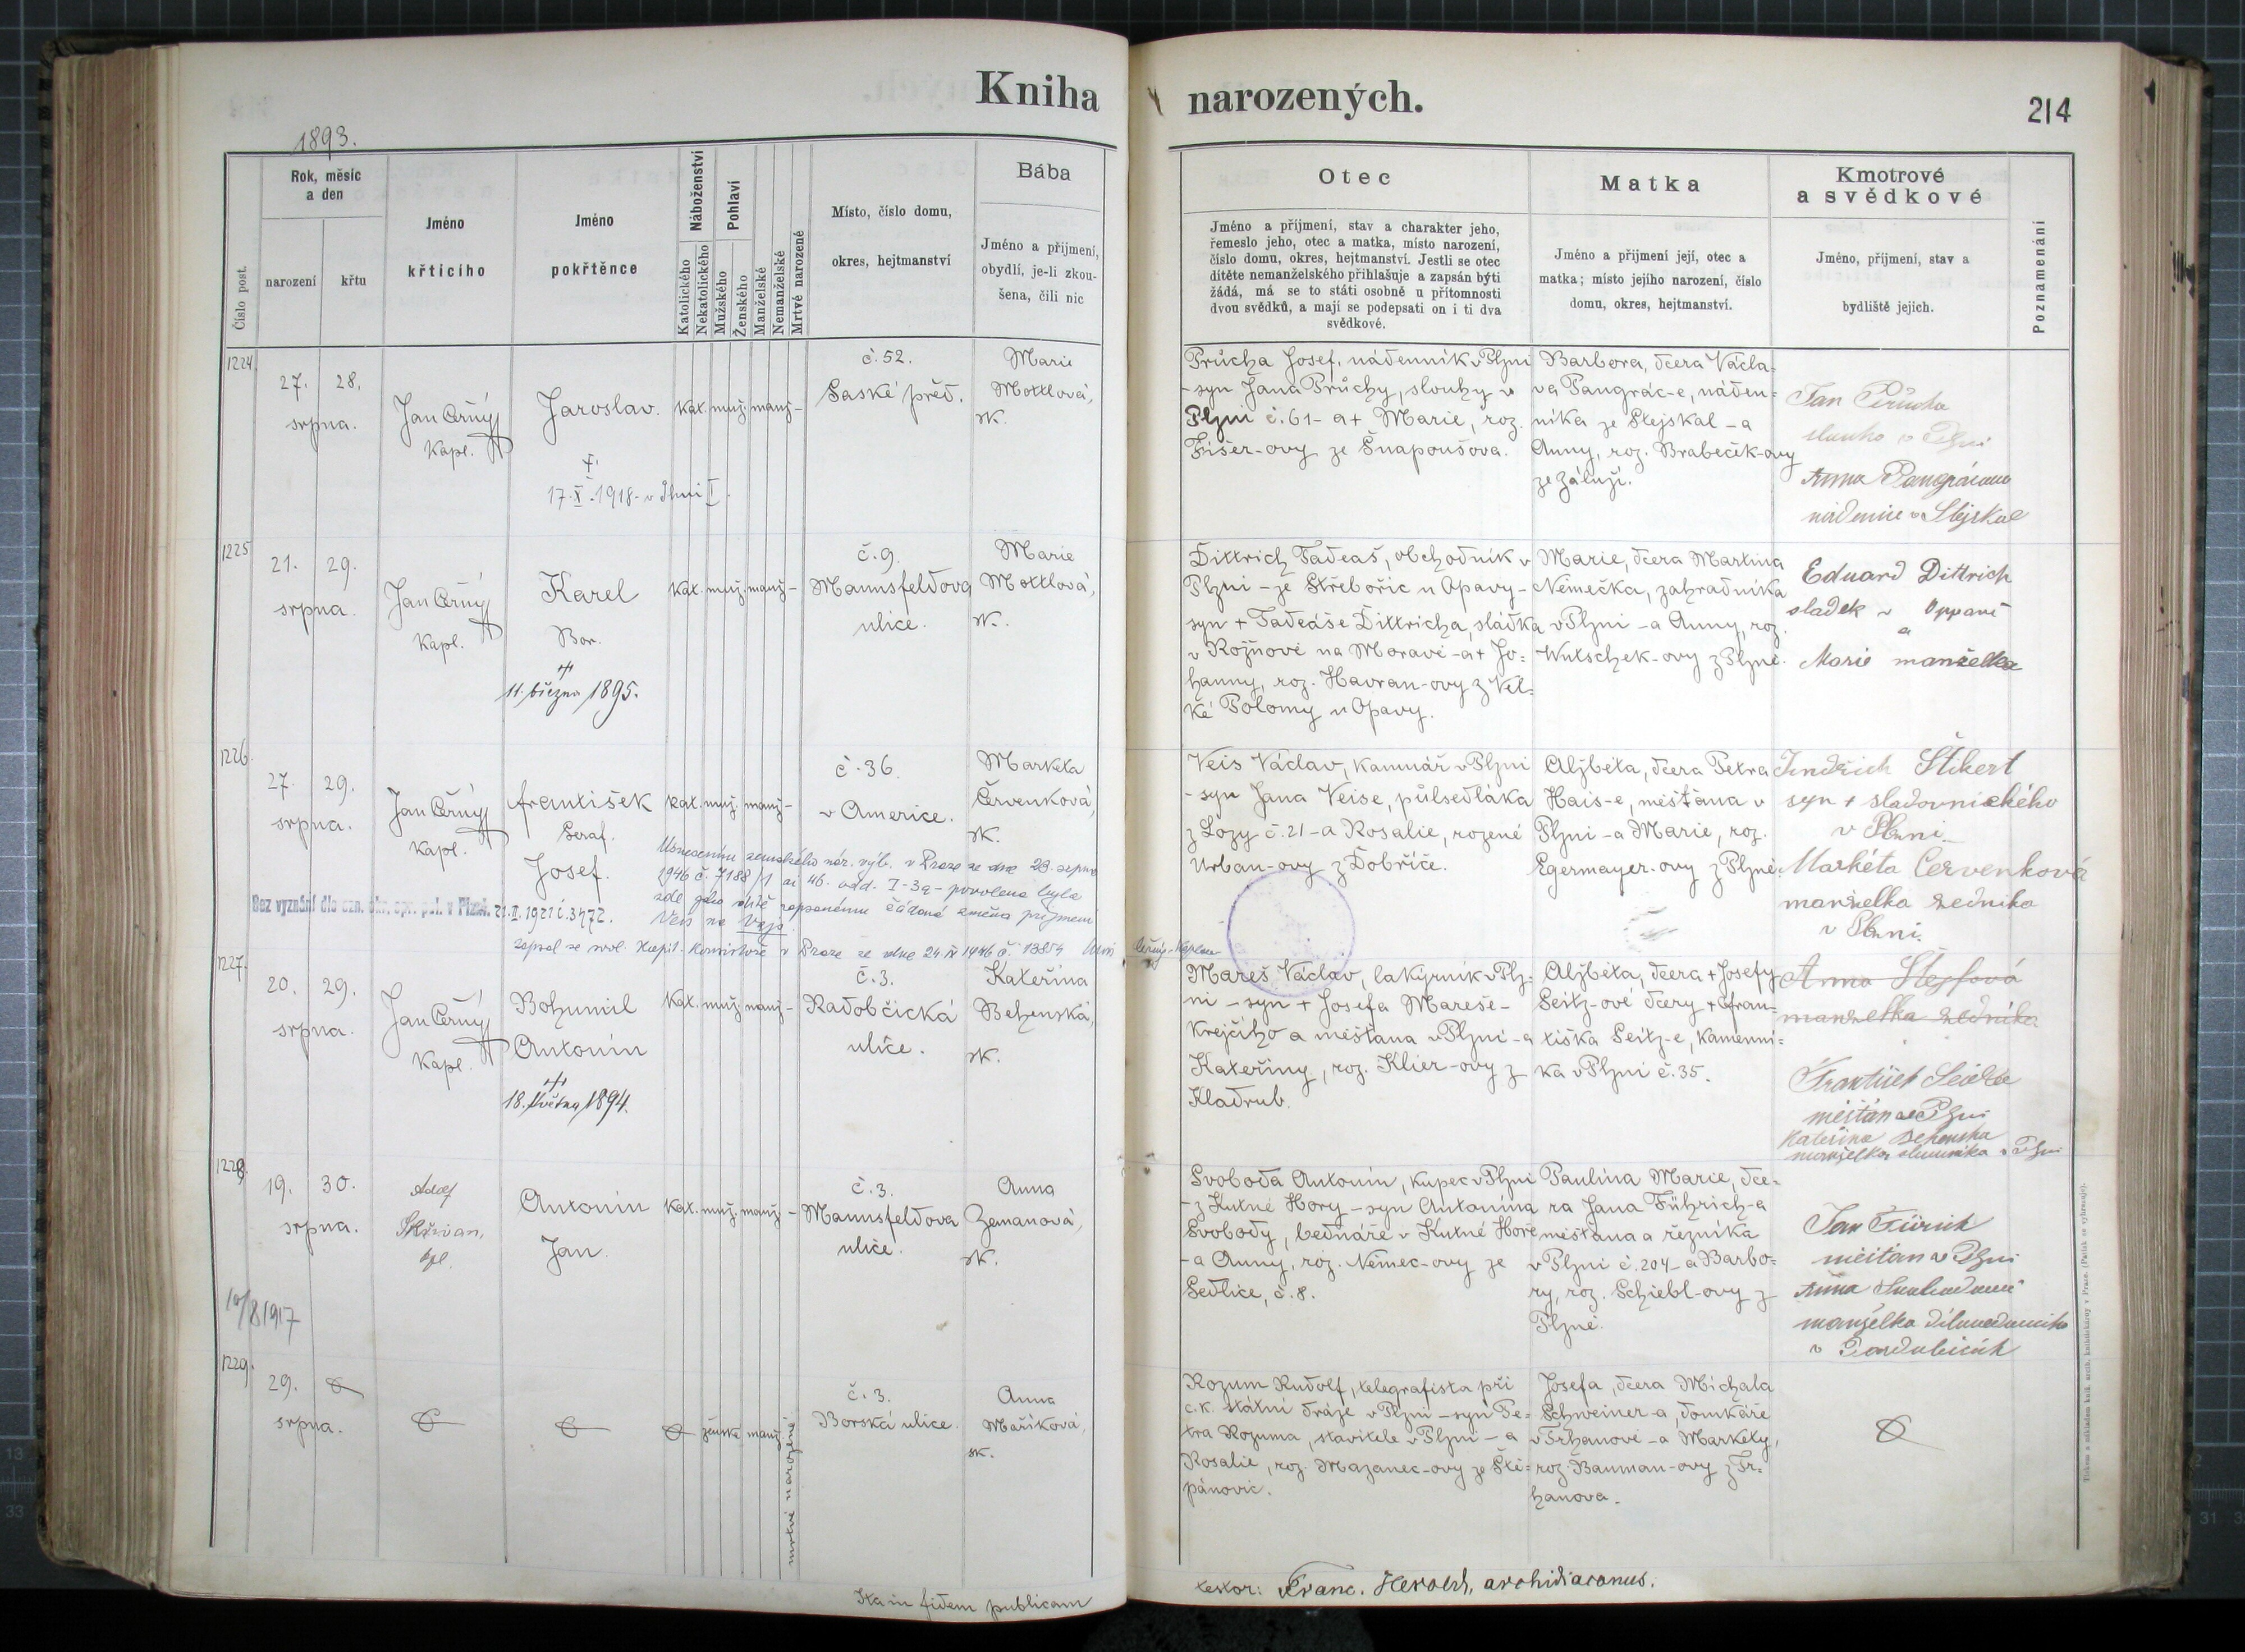 Kniha narozených.
214
1893.
Číslo post.
Rok, měsíc
a den
narození
křtu
Jméno
křtícího
Jméno
pokřtěnce
Náboženství
Katolického
Nekatolického
Pohlaví
Mužského
Ženského
Manželské
Nemanželské
Mrtvě narozené
Místo, číslo domu,
okres, hejtmanství
Bába
Jméno a příjmení,
obydlí, je-li zkou-
šena, čili nic
Otec
Jméno a příjmení, stav a charakter jeho,
řemeslo jeho, otec a matka, místo narození,
číslo domu, okres, hejtmanství. Jestli se otec
dítěte nemanželského přihlašuje a zapsán býti
žádá, má se to státi osobně u přítomnosti
dvou svědků, a mají se podepsati on i ti dva
svědkové.
Matka
Jméno a příjmení její, otec a
matka; místo jejího narození, číslo
domu, okres, hejtmanství.
Kmotrové
a svědkové
Jméno, příjmení, stav a
bydliště jejich.
Poznamenání
1224
27. 28.
srpna.
Jan Černý
Kapl.
Jaroslav.
†
17.X.1918 v Plzni I.
kat. muž. manž -
č. 52.
Saské před.
Marie
Mottlová,
zk.
Průcha Josef, nádenník v Plzni
- syn Jana Průchy, slouhy v
Plzni č. 61 - a + Marie, roz.
Fišer-ovy ze Šnapoušova.
Barbora, dcera Václa-
va Pangrác-e, náden-
níka ze Stejskal - a
Anny, roz. Brabečík-ovy
ze Záluží.
Jan Průcha
slouha v Plzni
Anna Pangrácova
nádenice v Stejskal
1225
21. 29.
srpna.
Jan Černý
Kapl.
Karel
Bor.
†
11. března 1895.
kat. muž. manž -
č. 9.
Mannsfeldova
ulice.
Marie
Mottlová,
zk.
Dittrich Tadeaš, obchodník v
Plzni - ze Střebořic u Opavy -
syn + Tadeáše Dittricha, sládka
v Rožnově na Moravě - a + Jo=
hanny, roz. Havran-ovy z Vel=
ké Polomy u Opavy.
Marie, dcera Martina
Němečka, zahradníka
v Plzni - a Anny, roz.
Wutschek-ovy z Plzně.
Eduard Dittrich
sladek v Oppavě
a
Marie manželka
1226
27. 29.
srpna.
Jan Černý
Kapl.
František
Seraf.
Josef.
kat. muž. manž -
č. 36.
v Americe.
Marketa
Červenková,
zk.
Usnesením zemského nár. výb. v Praze ze dne 28. srpna
1946 č. 7188/1 ai 46. odd. I-3a - povolena byla
zde jako dítě zapsanému žádaná změna příjmení
Veis na Vajs.
Bez vyznání dle ozn. okr. spr. pol. v Plzni. 21.II.1921 č. 3472.
zapsal se svol. Kapit. Konsistoře v Praze ze dne 24.IX 1946 č. 13854
Veis Václav, kamnář v Plzni
- syn Jana Veise, půlsedláka
z Lozy č. 21 - a Rosalie, rozené
Urban-ovy z Dobříče.
Alžběta, dcera Petra
Hais-e, měšťana v
Plzni - a Marie, roz.
Egermayer-ovy z Plzně.
Jindřich Štikert
syn + sladovnického
v Plzni
Markéta Červenková
manželka zedníka
v Plzni.
1227.
20. 29.
srpna.
Jan Černý
Kapl.
Bohumil
Antonín
†
18. května 1894.
kat. muž. manž -
č. 3.
Radobčická
ulice.
Kateřina
Behenská,
zk.
Mareš Václav, lakýrník v Plz-
ni - syn + Josefa Mareše -
krejčího a měšťana v Plzni - a
Kateřiny, roz. Klier-ovy z
Kladrub.
Alžběta, dcera + Josefy
Seitz-ové dcery + Fran-
tiška Seitz-e, kamenní-
ka v Plzni č. 35.
manželka zedníka
měšťan v Plzni
1228.
19. 30.
srpna.
Adolf
Skřivan,
kpl.
Antonín
Jan.
kat. muž. manž -
č. 3.
Mannsfeldova
ulice.
Anna
Zemanová,
zk.
10/8 1917
Svoboda Antonín, kupec v Plzni
- z Kutné Hory - syn Antonína
Svobody, bednáře v Kutné Hoře
- a Anny, roz. Němec-ovy ze
Sedlice, č. 8.
Paulina Marie, dce-
ra Jana Führich-a
měšťana a řezníka
v Plzni č. 204 - a Barbo=
ry, roz. Schiebl-ovy z
Plzně.
měšťan v Plzni
Anna
manželka
v Pardubicích
1229.
29.
srpna.
ženské manž. mrtvě narozené
č. 3.
Borská ulice.
Anna
Maříková,
zk.
Rozum Rudolf, telegrafista při
c.k. státní dráze v Plzni - syn Pe=
tra Rozuma, stavitele v Plzni - a
Rosalie, roz. Mazanec-ovy ze Ště=
pánovic.
Josefa, dcera Michala
Schweiner-a, domkáře
v Trhanově - a Markéty,
roz. Bauman-ovy z Tr=
hanova.
Ita in fidem publicam
testor: Franc. Herold, archidiaconus.